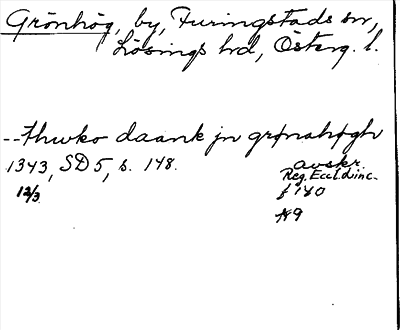 Grönhög, by, Furingstads sn,
Lösings hd, Österg. l.
-- thuko daank jn grønahøgh
1343, SD 5, s. 148.
12/3
avskr.
Reg. Eccl. Linc.
f 140
N9